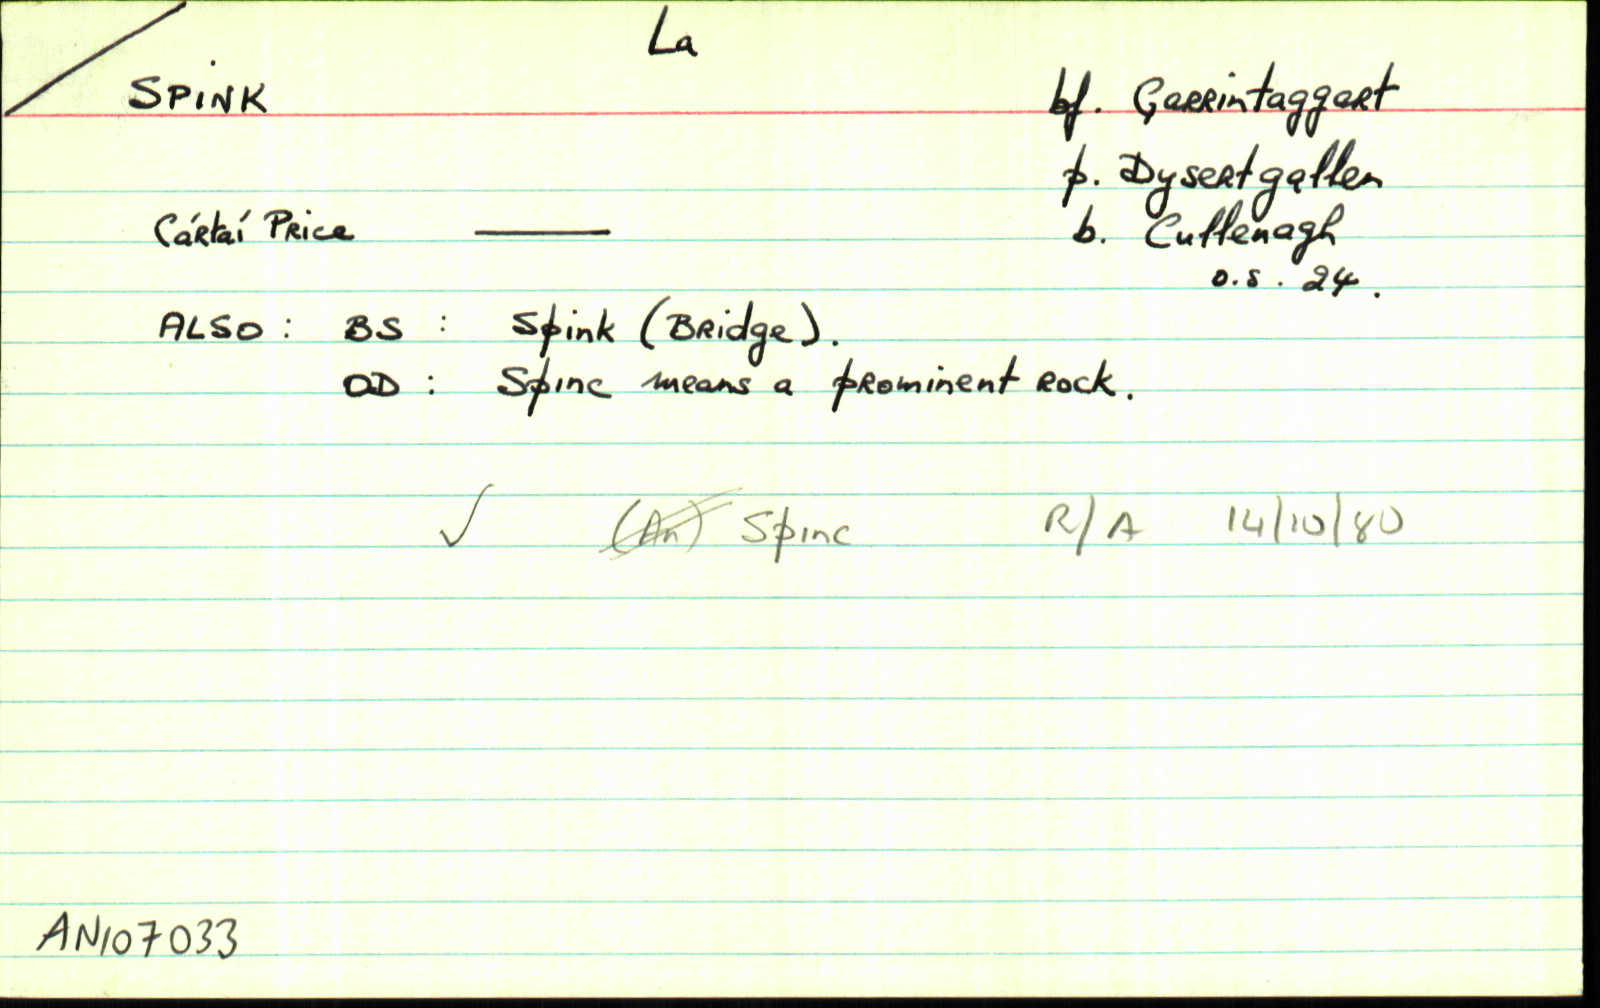 La
SPINK
bf. Garrintaggart
p. Dysertgallen
Cártaí Price ——— b. Cullenagh
o.s. 24.
ALSO : BS : Spink (Bridge).
OD : Spinc means a prominent rock.
✓ (An) Spinc R/A 14/10/80
AN107033